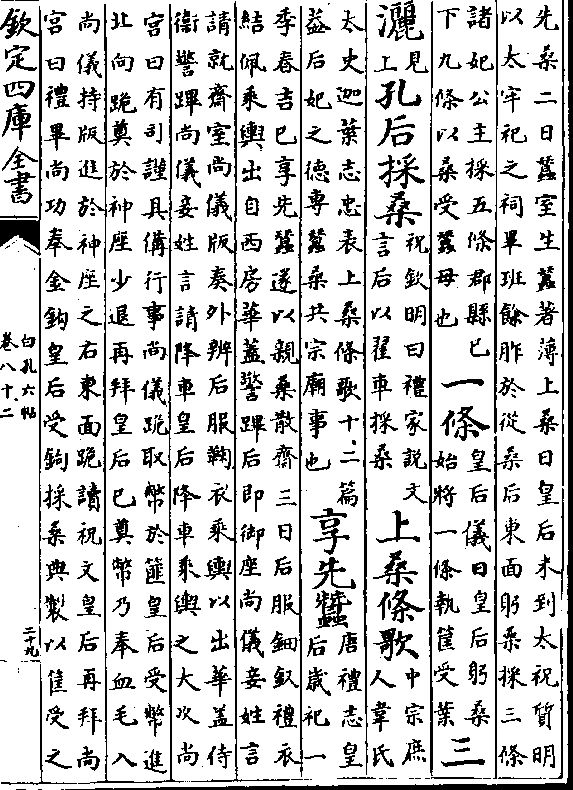 先桑二日蠶室生蠶著薄上桑日皇后未到太祝質明
以太牢祀之祠畢班餘胙於從桑后東面躬桑採三條
諸妃公主採五條郡縣已
下九條以桑受蠶母也
一條
皇后儀曰皇后躬桑
始將一條執筐受葉
三
灑
見
上
孔后採桑
祝欽明曰禮家說文
言后以翟車採桑
上桑條歌
中宗庶
人韋氏
太史迦葉志忠表上桑條歌十二篇
益后妃之德專蠶桑共宗廟事也
享先蠶
唐禮志皇
后歲祀一
季春吉巳享先蠶遂以親桑散齋三日后服鈿釵禮衣
結佩乘輿出自西房華蓋警蹕后即御座尚儀妾姓言
請就齋室尚儀版奏外辨后服鞠衣乘輿以出華盖侍
衞警蹕尚儀妾姓言請降車皇后降車乘輿之大次尚
宫曰有司謹具備行事尚儀跪取幣於篚皇后受幣進
北向跪奠於神座少退再拜皇后已奠幣乃奉血毛入
尚儀持版進於神座之右東面跪讀祝文皇后再拜尚
宮曰禮畢尚功奉金鈎皇后受鈎採桑典製以筐受之
欽定四庫全書
白孔六帖
卷八十二
二十九